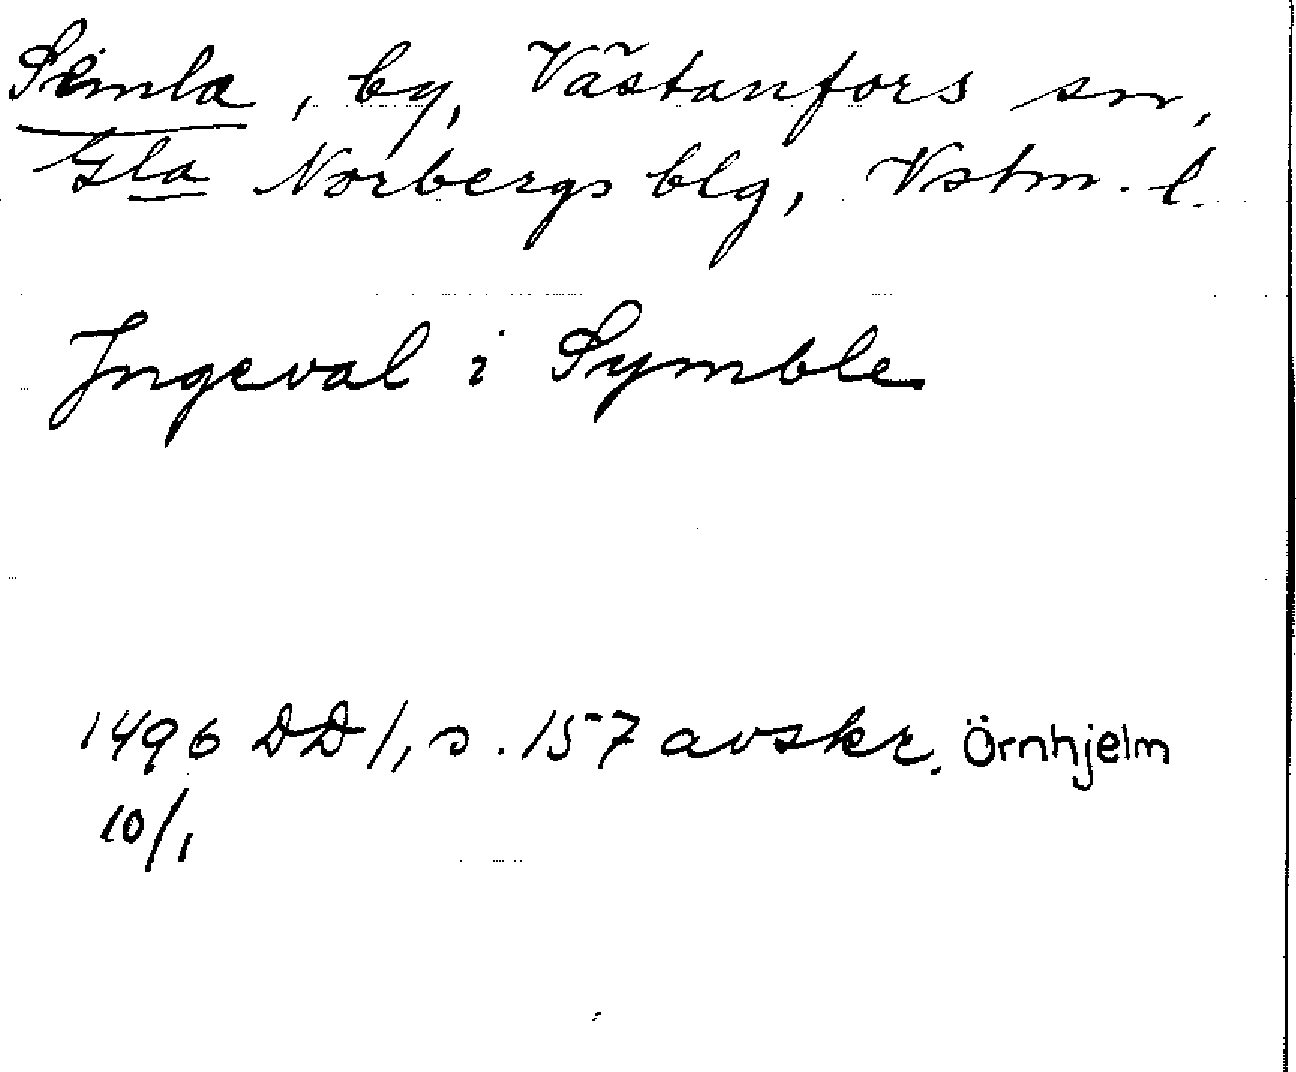 Semla, by, Västanfors sn,
Gla Norbergs blg, Vstm. l.
Ingeval i Symble
1496 DD 1, s. 157 avskr. Örnhjelm
10/1